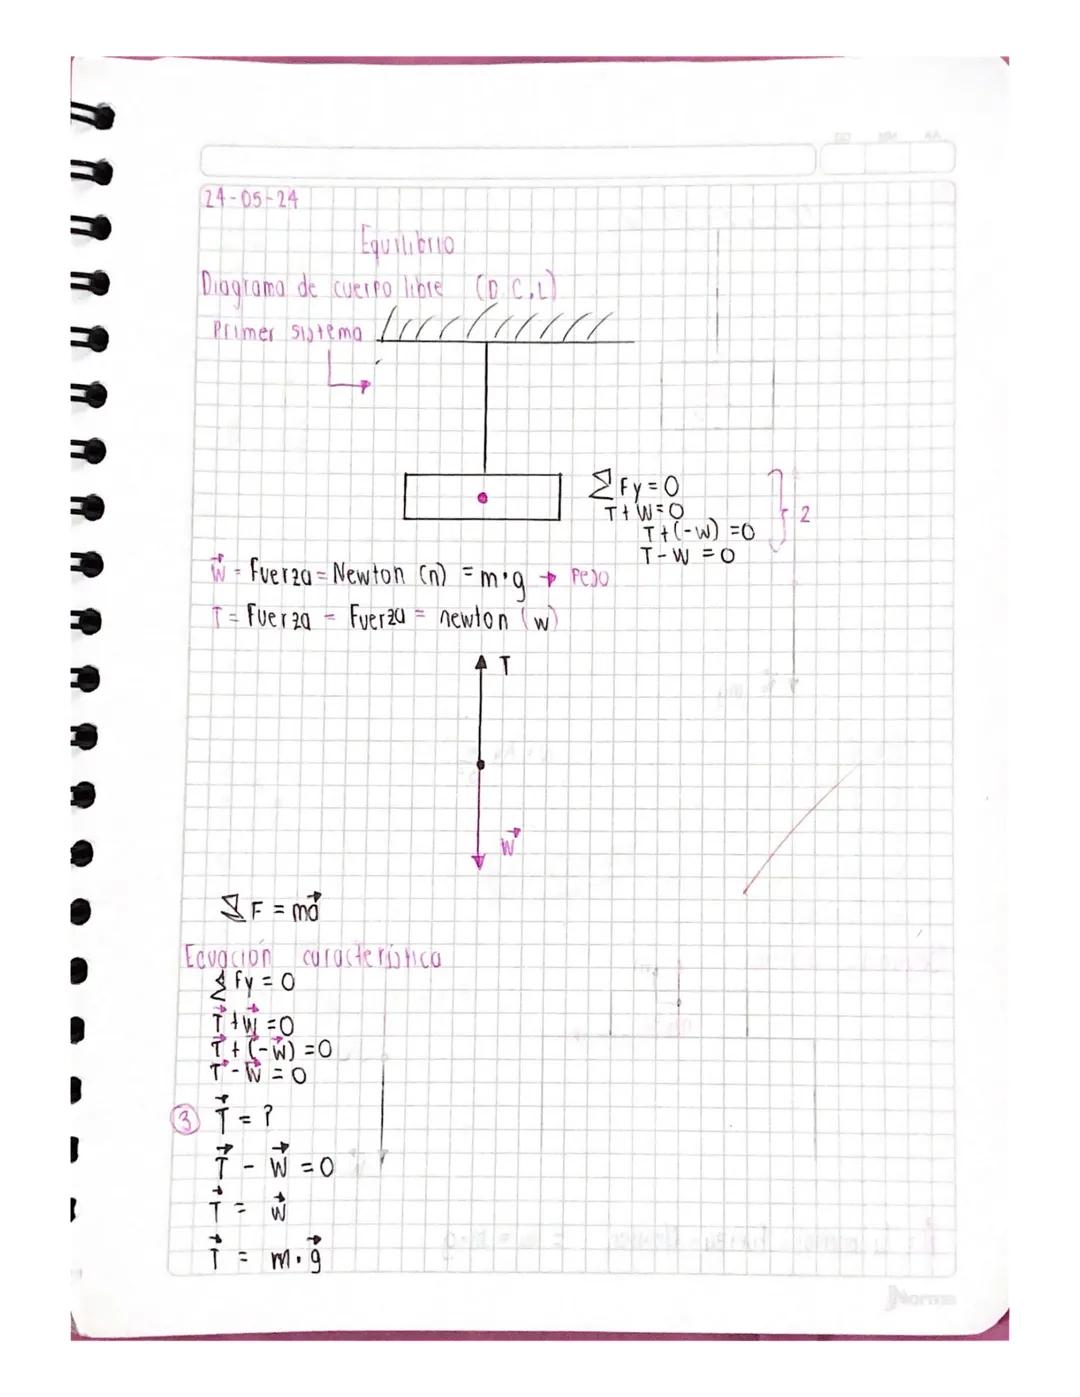 24-05-24
Equilibrio
Diagrama de cuerpo libre (D.C.L)
Primer sistema
∑Fy=0
T+W=0
T+(-w)=0
T-W=0
2
W⃗ = Fuerza = Newton (n) = m·g → Peso
T = Fuerza = Fuerza = newton (w)
T
W⃗
∑F = ma⃗
Ecuación caracteristica
∑Fy = 0
T⃗+W⃗=0
T⃗+(-W⃗)=0
T⃗-W⃗=0
3 T⃗ = ?
T⃗ - W⃗ = 0
T⃗ = W⃗
T⃗ = m·g⃗
Norma